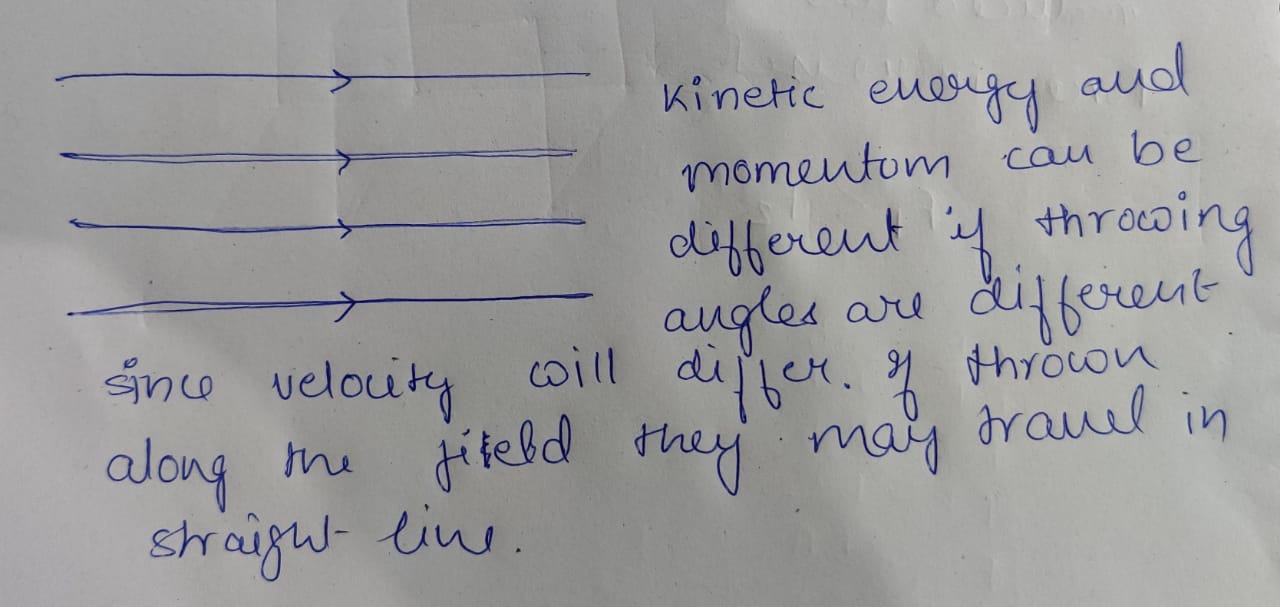 Kinetic energy and
momentom can be
different if throwing
angles are different
since velocity will differ. If thrown
along the field they may travel in
straight line.